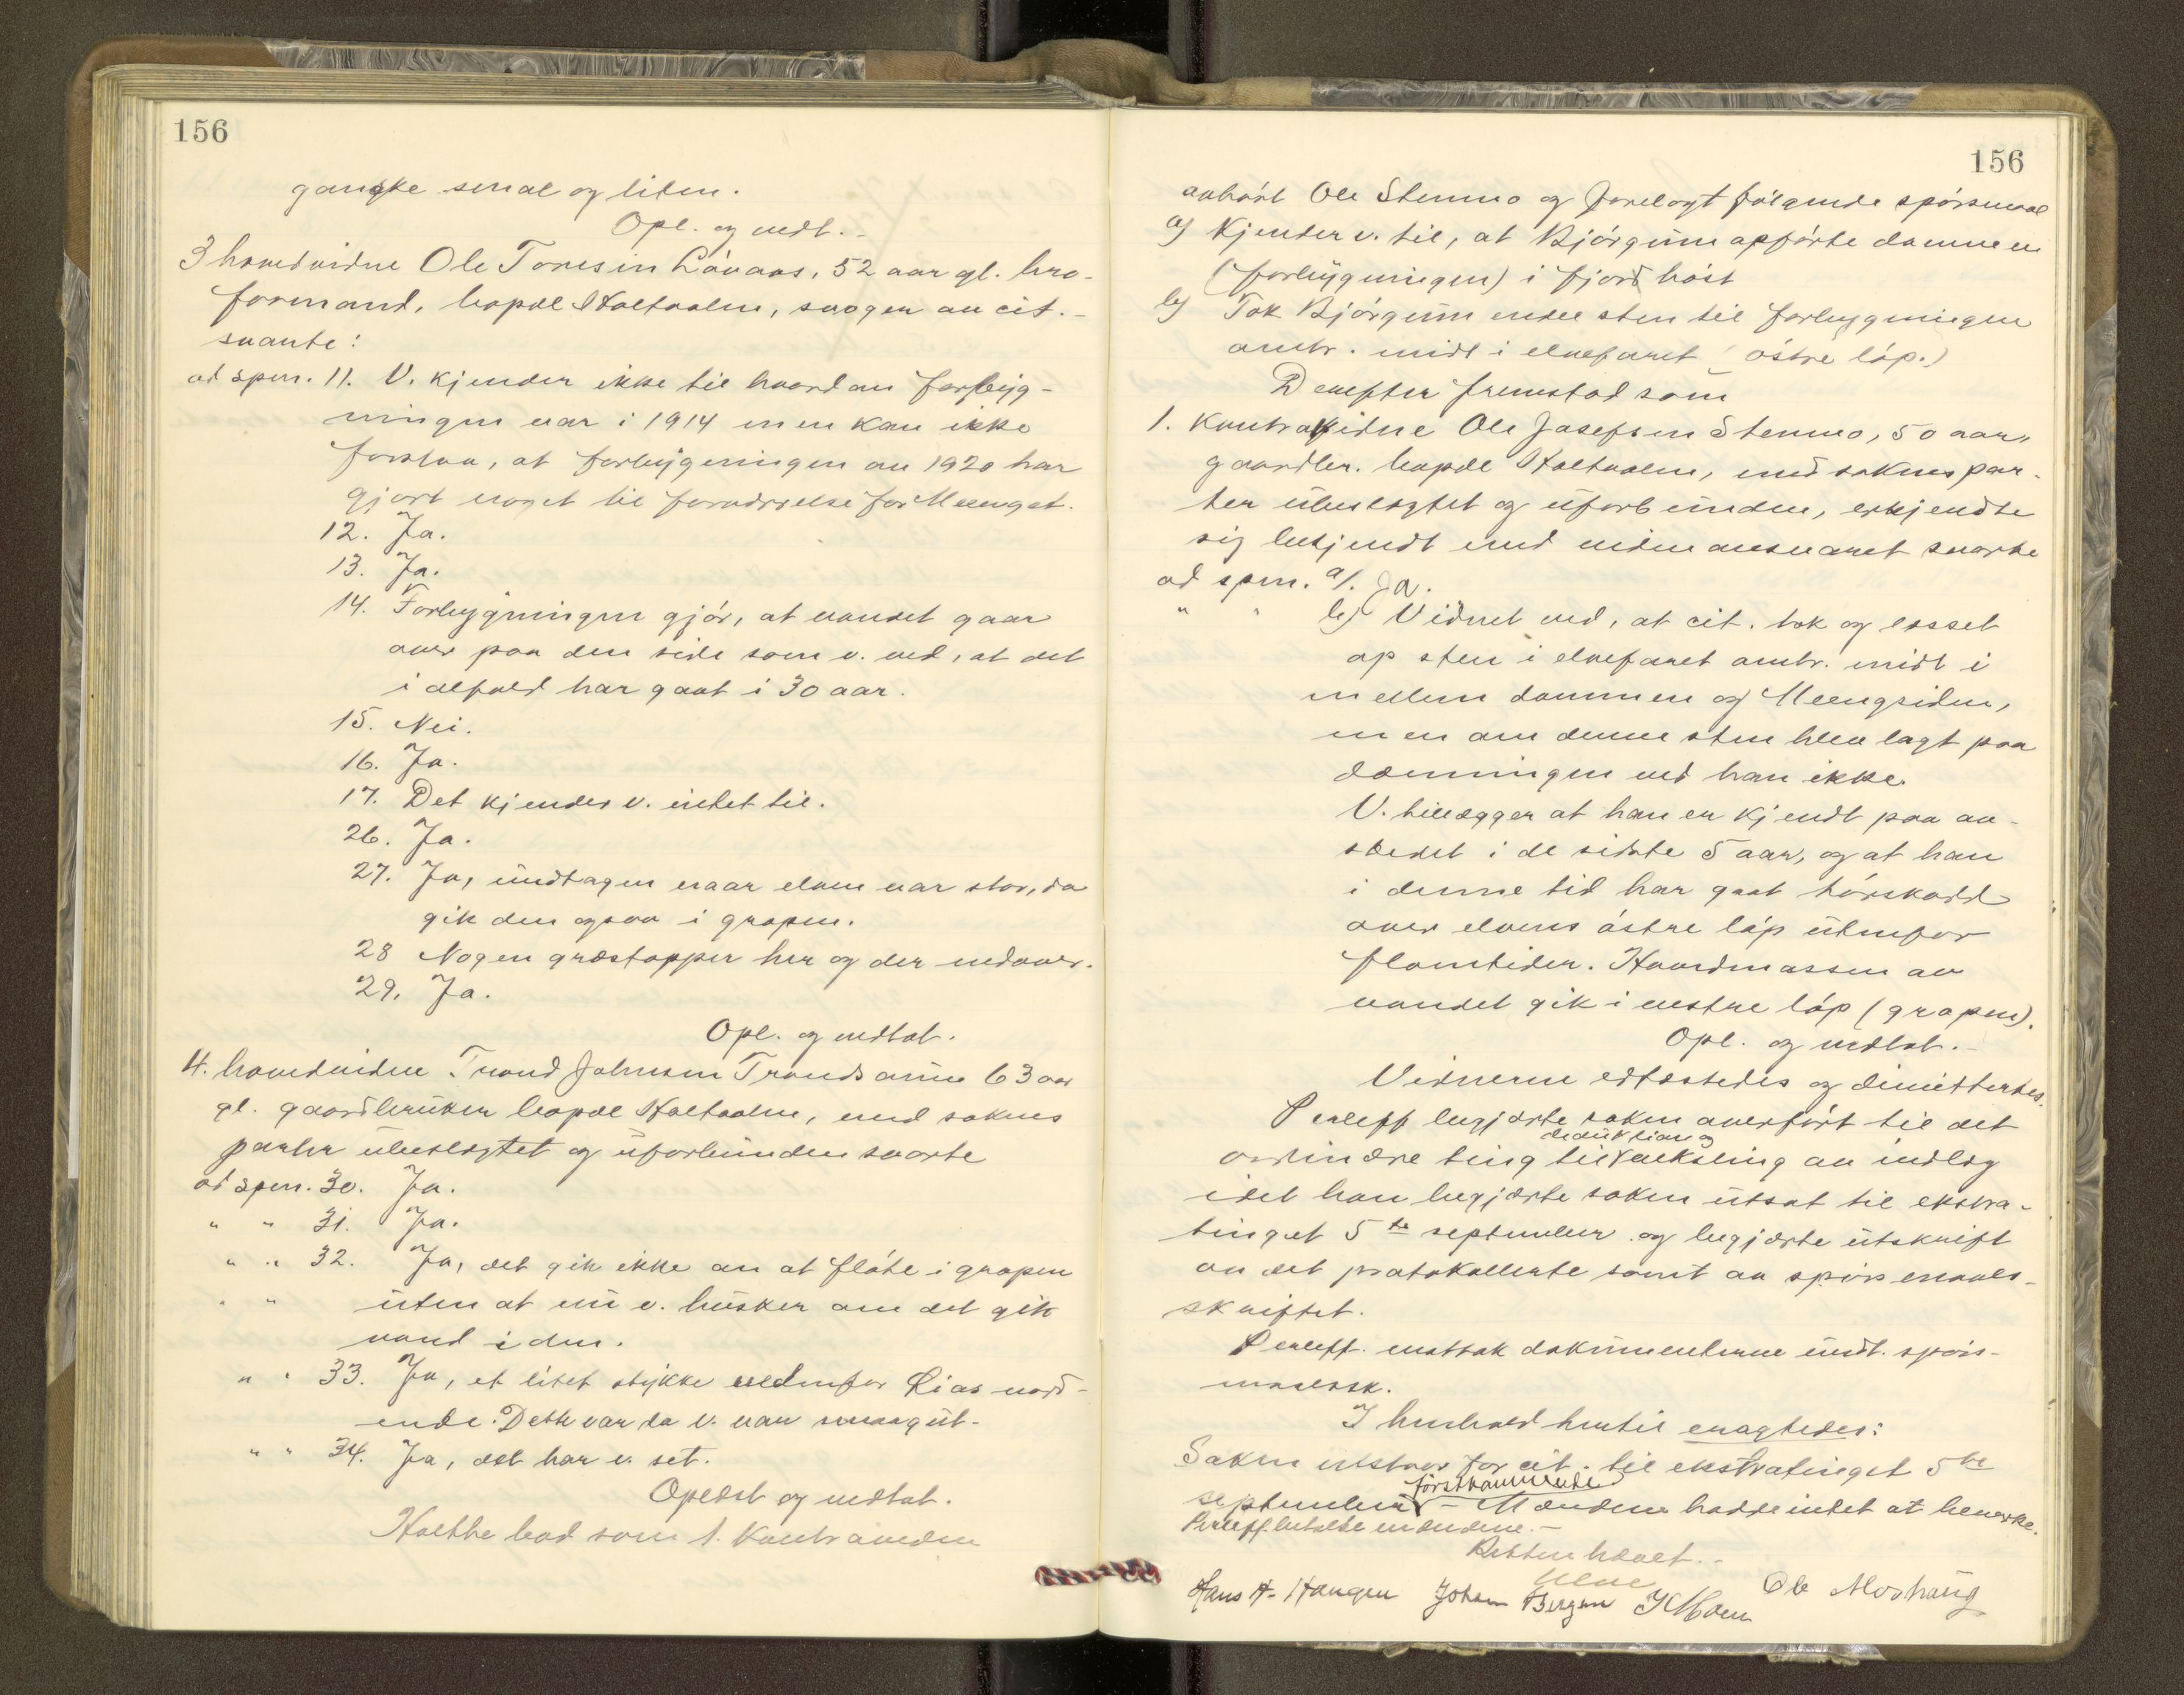 156
ganske smal og liten.
Opl. og vedt. -
3 hovedvidne Ole Tonesen Løvaas, 52 aar gl. bro-
formand, bopæl Holtaalen, svoger av cit. -
svarte:
ad spm. 11. V. kjender ikke til hvordan forbyg-
ningen var i 1914 men kan ikke
forstaa, at forbygningen av 1920 har
gjort noget til forandring for Meenget.
12. Ja.
13. Ja.
14. Forbygningen gjør, at vandet gaar
over paa den side som v. ved, at det
i alfald har gaat i 30 aar.
15. Nei.
16. Ja.
17. Det kjender v. intet til.
26. Ja.
27. Ja, undtagen naar elven var stor, da
gik den ogsaa i grapen.
28 Nogen græstopper her og der nedover.
29. Ja.
Opl. og vedtat.
4. hovedvidne Trond Johnsen Trondsaune 63 aar
gl. gaardbruker bopæl Holtaalen, med sakens
parter ubeslegtet og uforbunden svarte
ad spm. 30. Ja.
" " 31. Ja.
" " 32. Ja, det gik ikke an at fløte i grapen
" " uten at nu v. husker om det gik
vand i den.
" " 33. Ja, et litet stykke nedenfor Lias nord-
ende. Dette var da v. var smaagut-
" " 34. Ja, det har v. set.
Oplæst og vedtat.
Holthe bad som 1. kontravidne
156
avhørt Ole Stenmo og forelagt følgende spørsmaal
a) Kjender v. til, at Bjørgum opførte dammen
(forbygningen) i fjord høst
b) Tok Bjørgum endel sten til forbygningen
omtr. midt i elvefaret (østre løp.)
Derefter fremstod som
1. Kontravidne Ole Josefsen Stenmo, 50 aar,
gaardbr. bopæl Holtaalen, med sakens par-
ter ubeslegtet og uforbunden, erkjendte
sig bekjendt med vidneansvaret svarte
ad spm. a/. Ja.
" " b) Vidnet ved, at cit. tok og lesset
op sten i elvefaret omtr. midt i
mellem dammen og Meengsiden,
men om denne sten blev lagt paa
dæmningen ved han ikke.
V. tillægger at han er kjendt paa aa-
stedet i de sidste 5 aar, og at han
i denne tid har gaat tørskodd
over elvens østre løp utenfor
flomtider. Hovedmassen av
vandet gik i vestre løp (grapen).
Opl. og vedtat. -
Vidnerne edfæstedes og dimittertes.
Perleff begjærte saken overført til det
deduktion og
ordinære ting til veksling av indlæg
idet han begjærte saken utsat til ekstra-
tinget 5te september og begjærte utskrift
av det protokollerte samt av spørsmaals-
skriftet.
Perleff. mottok dokumenterne undt. spørs-
maalssk.
I henhold hertil eragtedes:
Saken utstaar for cit. til ekstratinget 5te
førstkommende
september - Mændene hadde intet at bemerke.
Perleff. betalte mændene. -
Retten hævet. -
Hans H. Haugen Johan Bergan J Moen Ole Moshaug